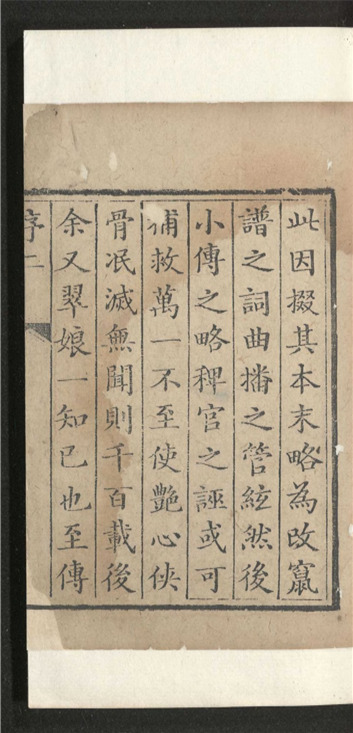 此因掇其本末略為改竄
譜之詞曲播之管絃然後
小傳之略稗官之誣或可
補救萬一不至使艷心俠
骨泯滅無聞則千百載後
余又翠娘一知已也至傳
序二